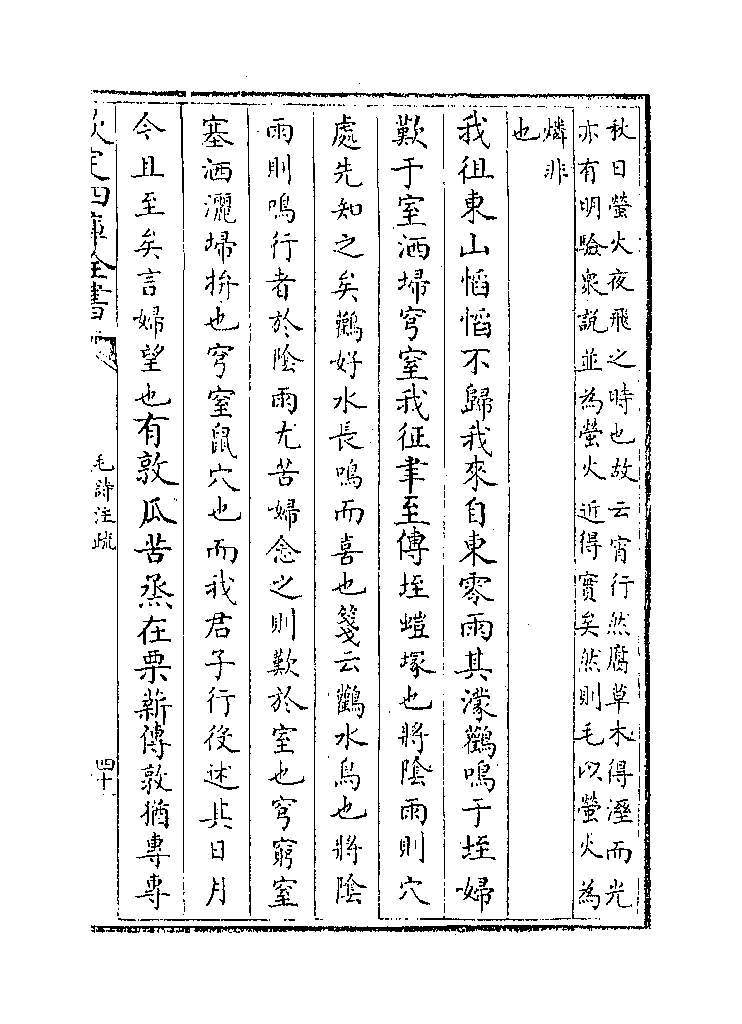 秋日螢火夜飛之時也故云宵行然腐草木得溼而光
亦有明驗衆説並為螢火近得實矣然則毛以螢火為
燐非
也
我徂東山慆慆不歸我來自東零雨其濛鸛鳴于垤婦
歎于室洒埽穹窒我征聿至傳垤螘塚也將陰雨則穴
處先知之矣鸛好水長鳴而喜也箋云鸛水鳥也將陰
雨則鳴行者於陰雨尤苦婦念之則歎於室也穹窮窒
塞洒灑埽拚也穹窒鼠穴也而我君子行役述其日月
今且至矣言婦望也有敦瓜苦烝在栗薪傳敦猶專專
欽定四庫全書
毛詩注疏
四十